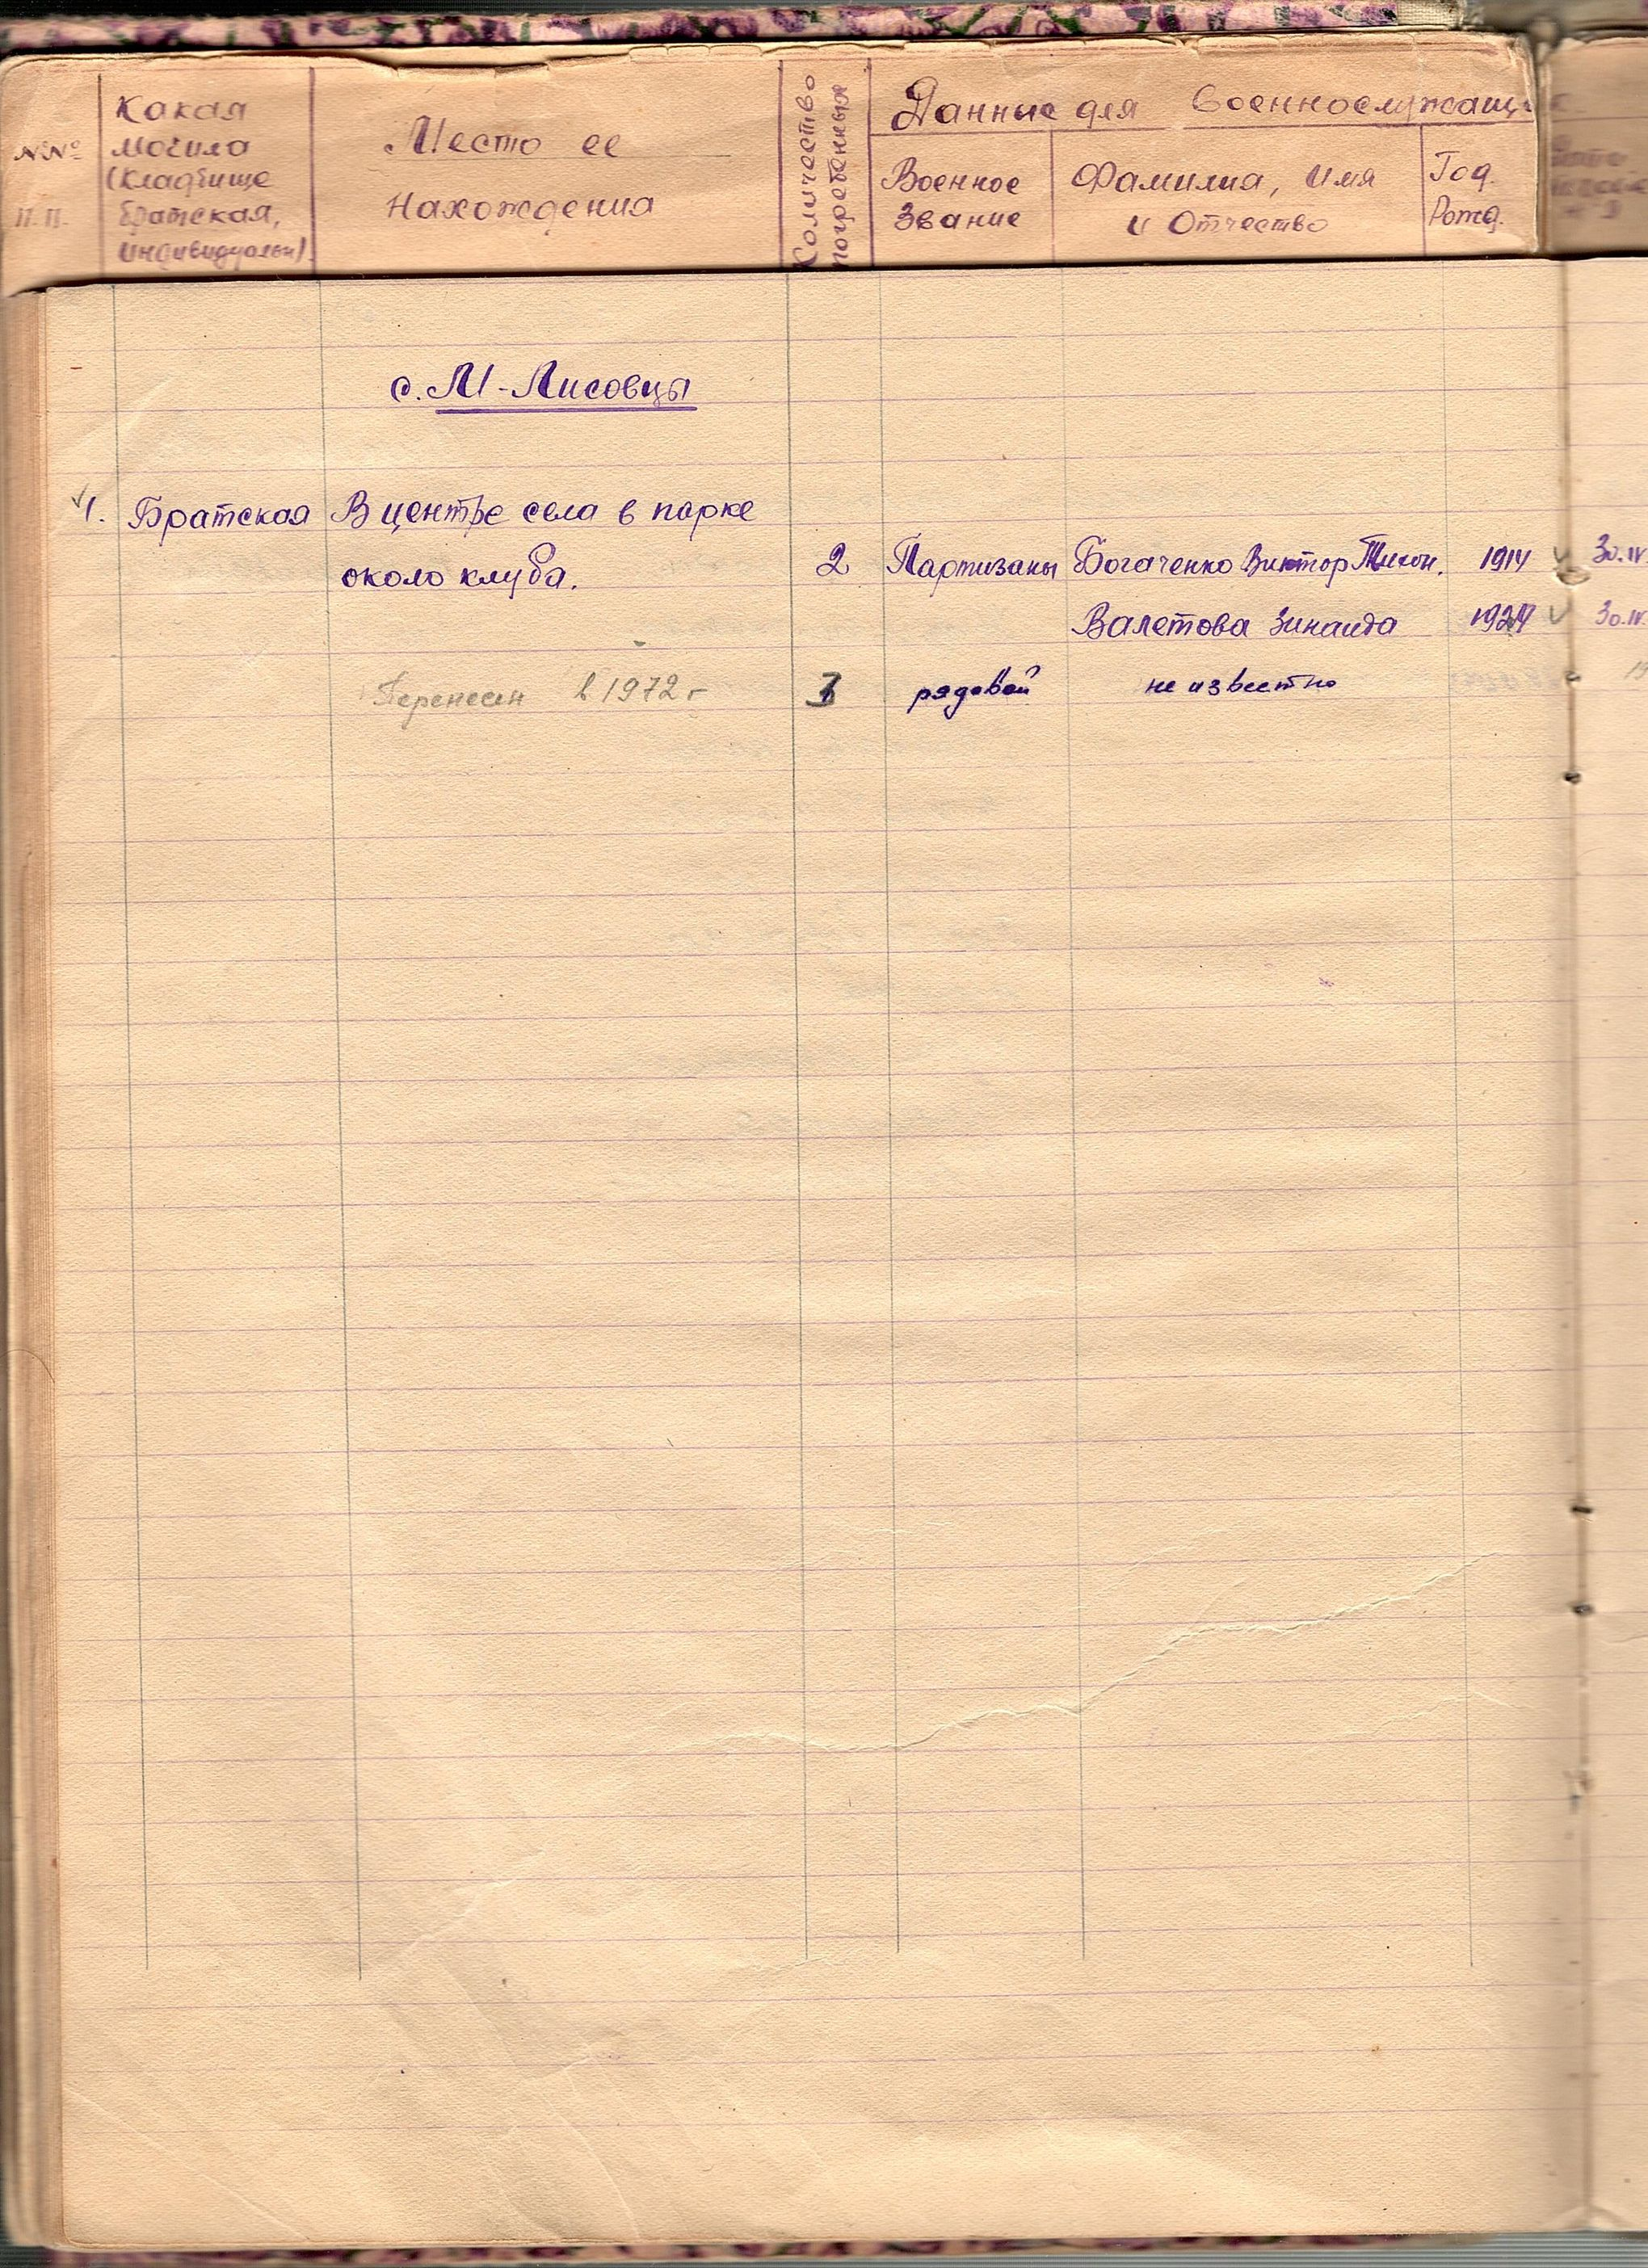 №№ п.п.
Какая могила (кладбище братская, индивидуальн).
Место ее нахождения
Количество погребенных
Данные для военнослужащ
Военное звание
Фамилия, имя и отчество
Год. Рожд.
с. М-Лисовцы
1. Братская В центре села в парке
около клуба. 2 Партизаны Богаченко Виктор Тихон. 1914 30.IV.
Валетова Зинаида 30.IV.
Перенесен в 1972 г рядовой не известно